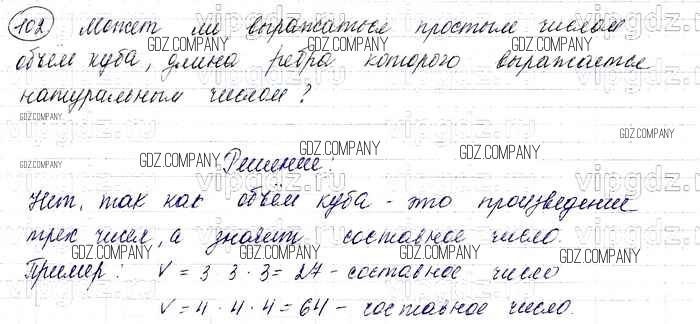 102 Может ли выражаться простым числом
объём куба, длина ребра которого выражается
натуральным числом?
Решение:
Нет, так как объём куба - это произведение
трех чисел, а значит составное число.
Пример: V = 3 3 · 3 = 27 - составное число
V = 4 · 4 · 4 = 64 - составное число.
GDZ.COMPANY
vipgdz.ru